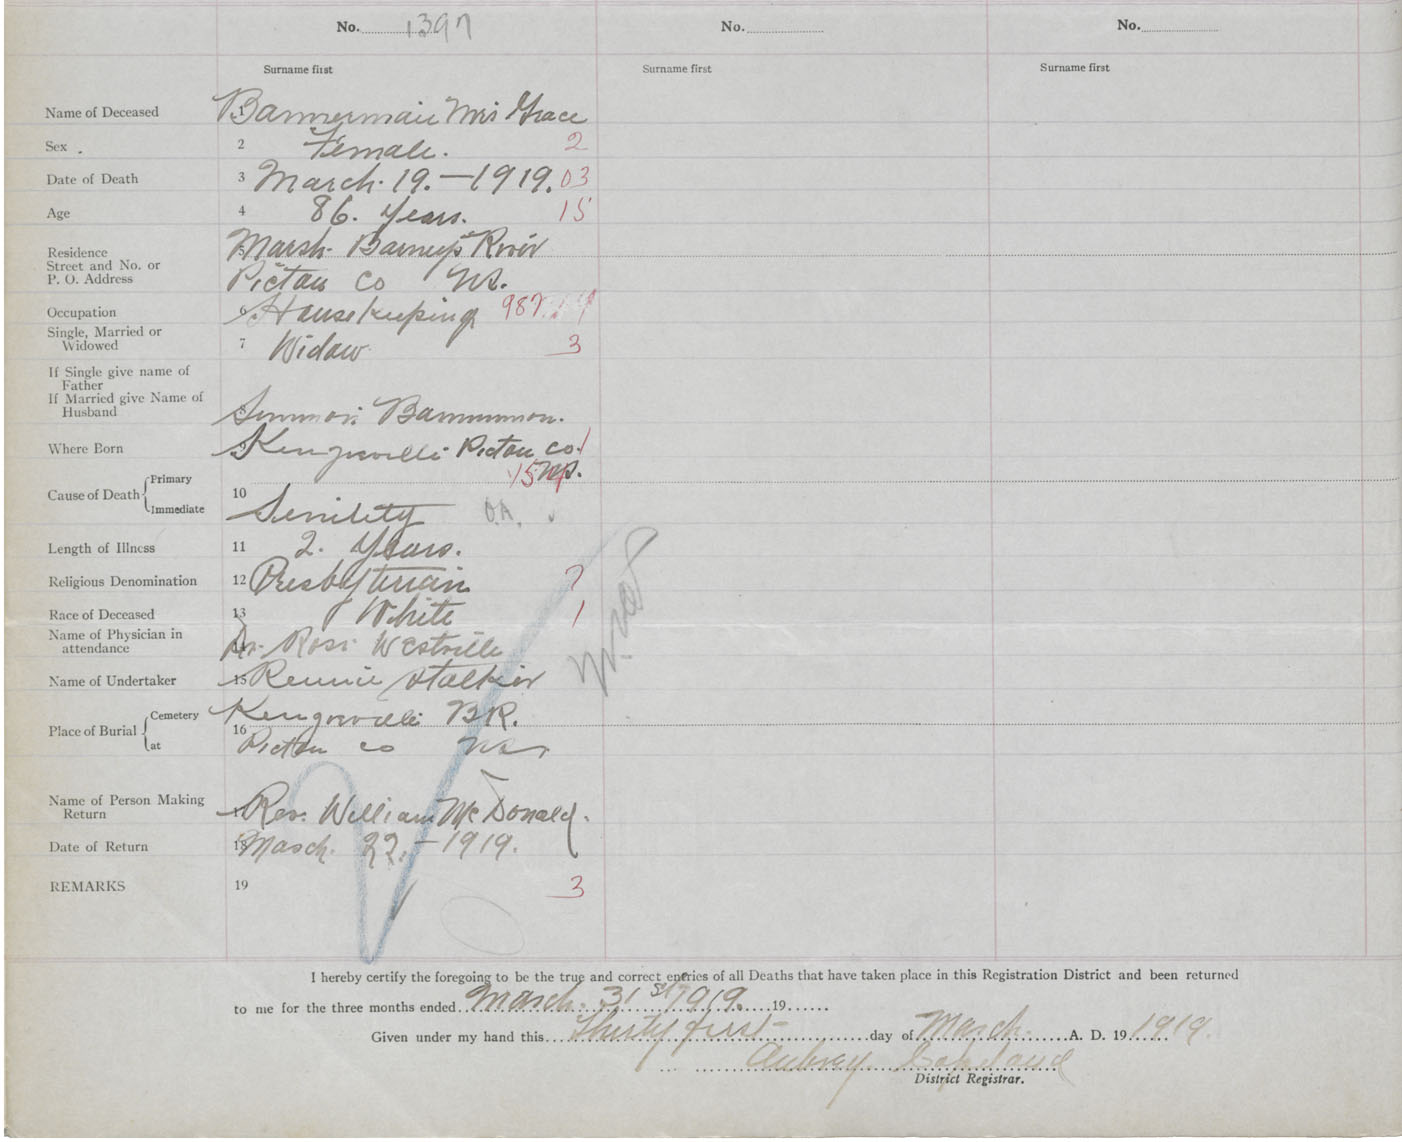 No. 1397 No. No.
Surname first Surname first Surname first
Name of Deceased 1 Bannerman Mrs Grace
Sex 2 Female. 2
Date of Death 3 March. 19. – 1919. 03
Age 4 86. Years. 15
Residence 5 Marsh Barneys River
Street and No. or
P. O. Address Pictou Co NS.
Occupation 6 Housekeeping 987
Single, Married or
Widowed 7 Widow 3
If Single give name of
Father
If Married give Name of
Husband 8
Where Born 9 Pictou Co. 1
15 NS.
Cause of Death Primary 10
Immediate Senility O.A.
Length of Illness 11 2. Years.
Religious Denomination 12 Presbyterian 7
Race of Deceased 13 White 1
Name of Physician in
attendance 14 Dr. Ross Westville
Name of Undertaker 15 Rennie Stalker
Place of Burial Cemetery 16 B.R.
at Pictou Co NS
Name of Person Making
Return 17 Rev. William McDonald.
Date of Return 18 March. 22. – 1919.
REMARKS 19 3
I hereby certify the foregoing to be the true and correct entries of all Deaths that have taken place in this Registration District and been returned
to me for the three months ended March. 31st 1919. 19
Given under my hand this Thirty first day of March A. D. 19 1919.
Aubrey Copeland
District Registrar.